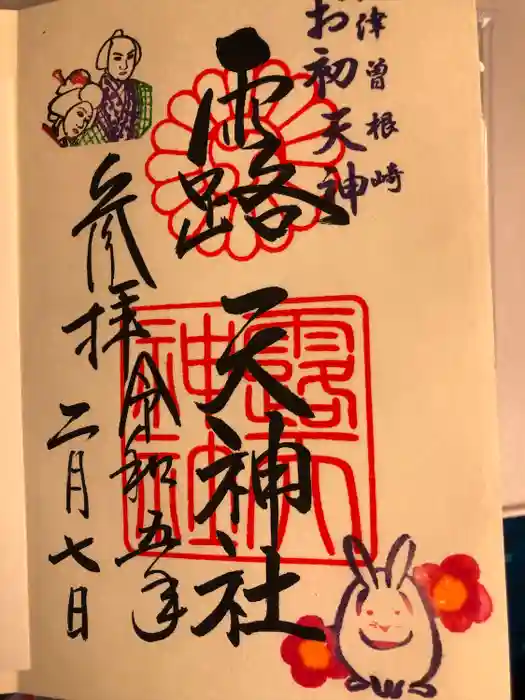 津曽根崎
お初天神
露天神社
露天
神社
参拝
令和五年
二月七日